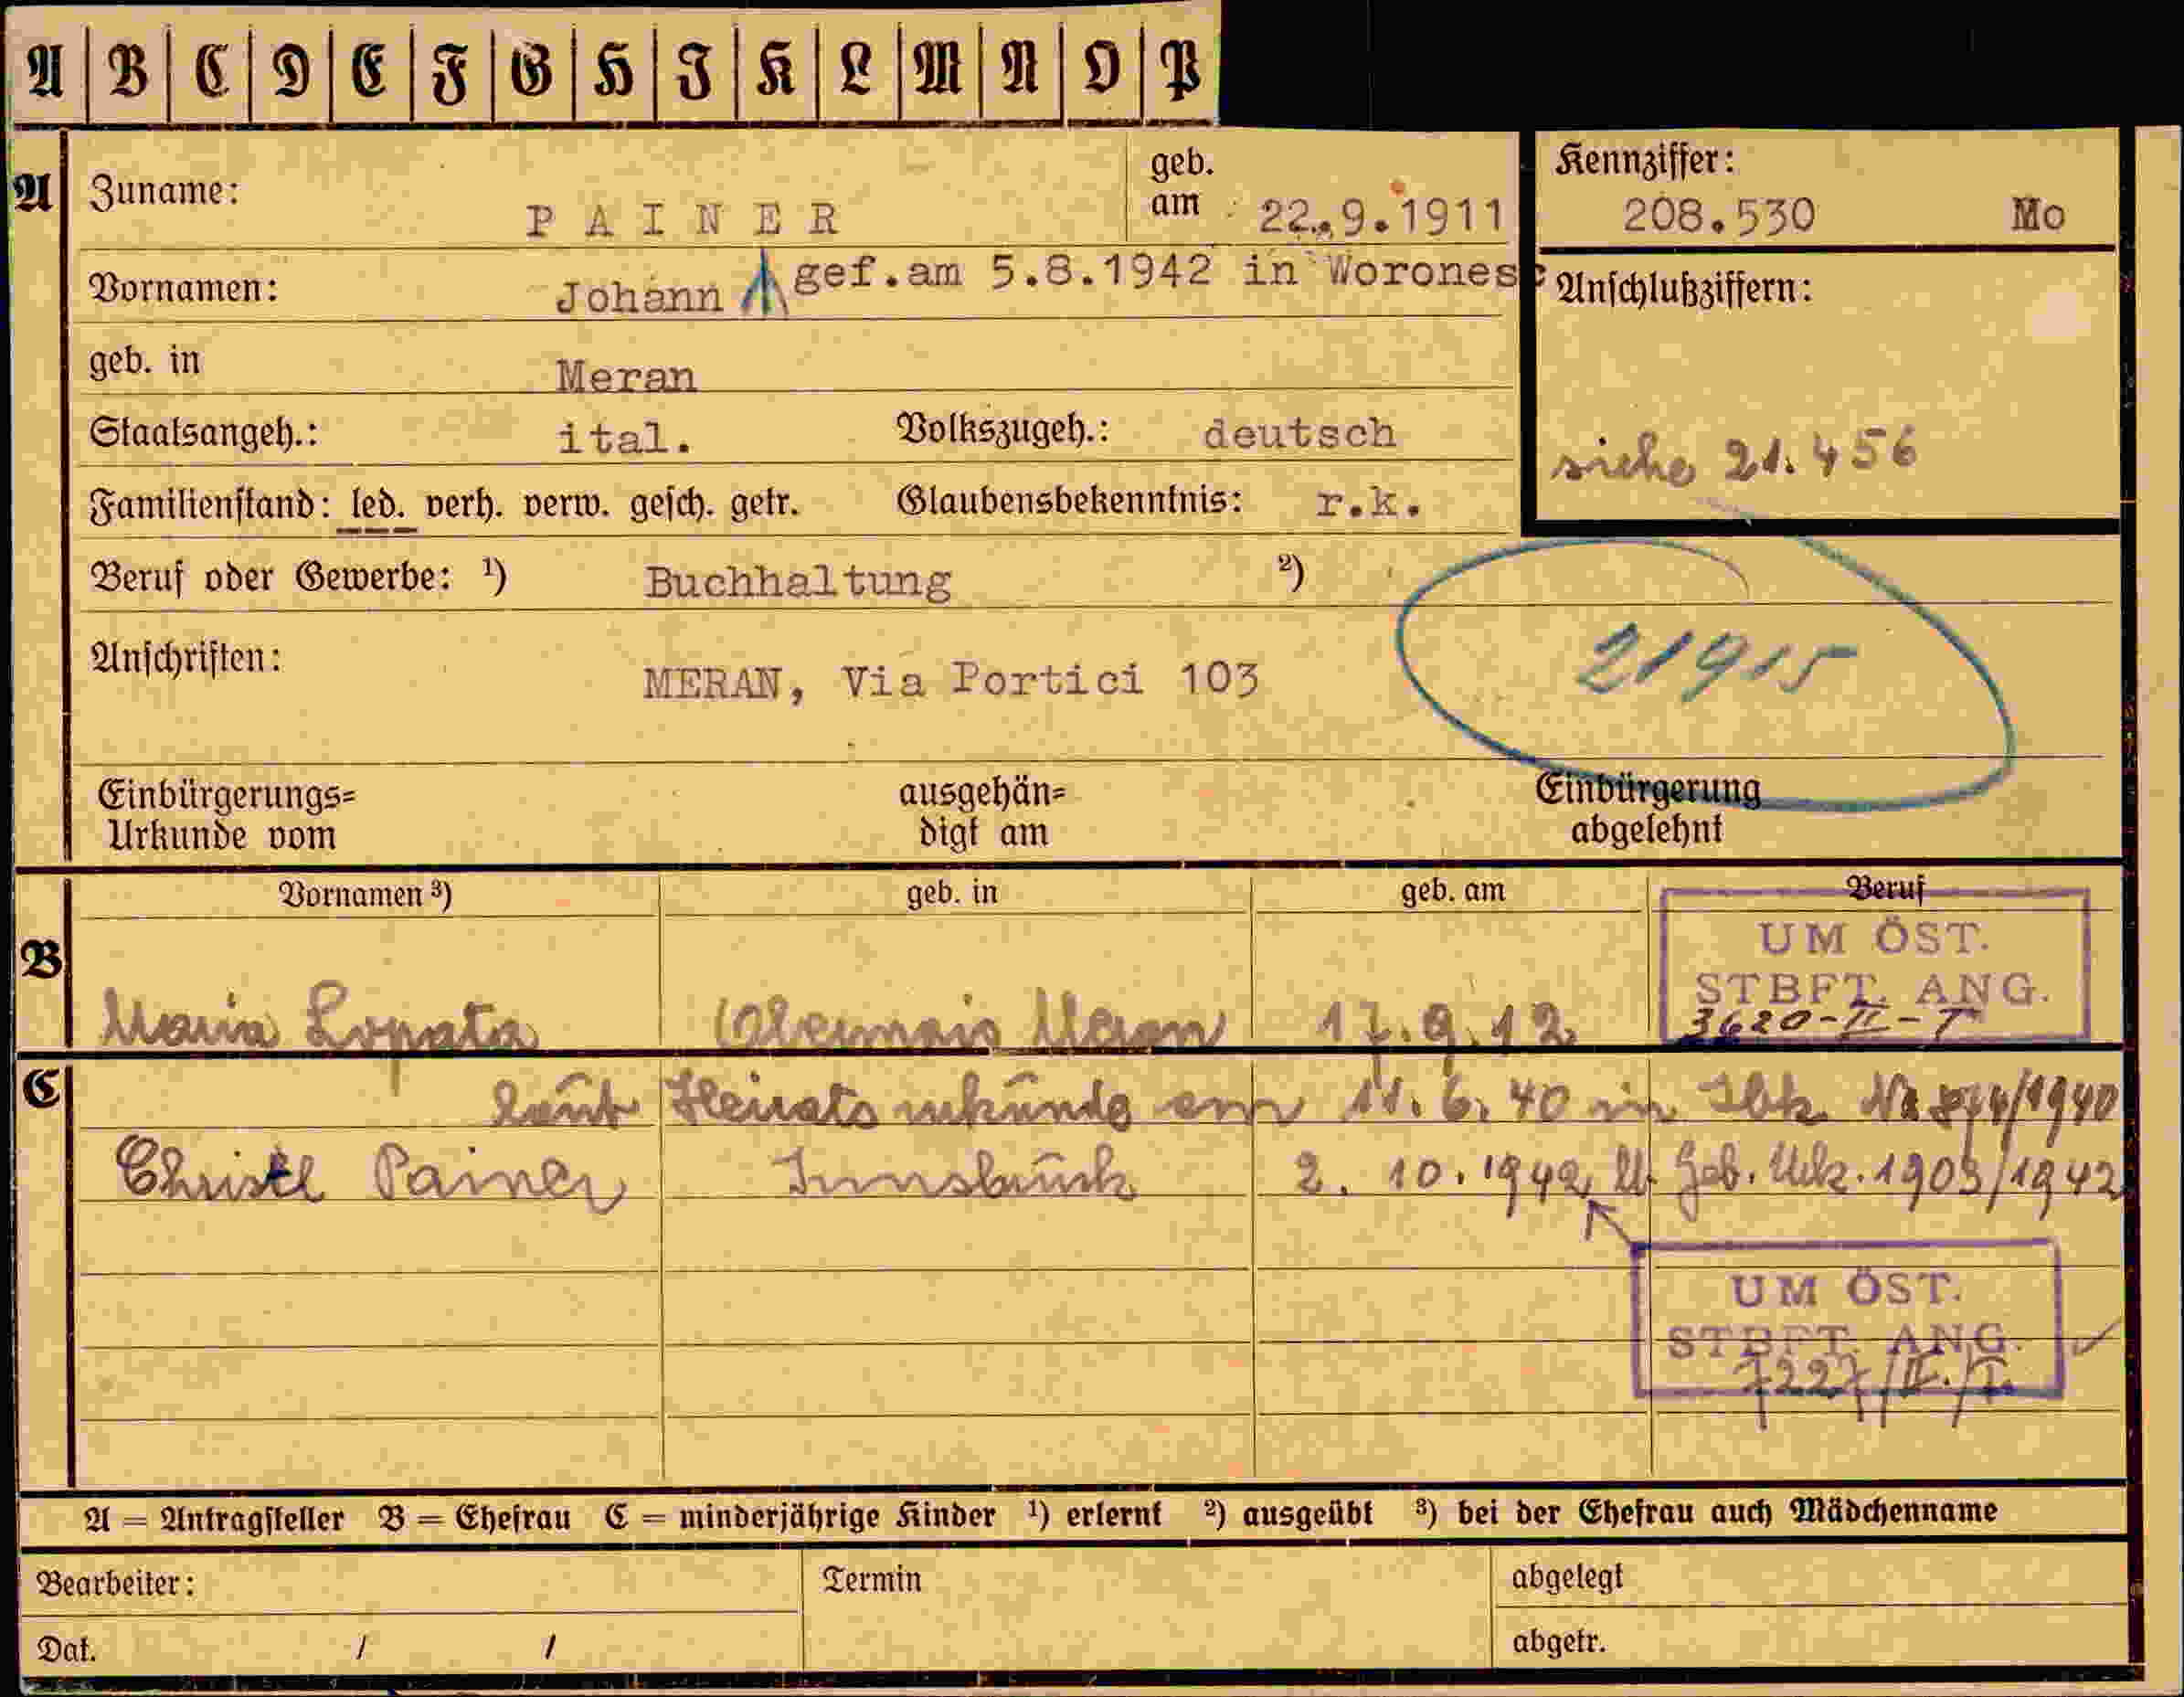 A B C D E F G H I K L M N O P
A Zuname: PAINER geb. am 22.9.1911 Kennziffer: 208.530 Mo
Vornamen: Johann gef.am 5.8.1942 in Worones Anschlußziffern:
geb. in Meran
Staatsangeh.: ital. Volkszugeh.: deutsch siehe 21.456
Familienstand: led. verh. verw. gesch. getr. Glaubensbekenntnis: r.k.
Beruf oder Gewerbe: ¹) Buchhaltung ²)
Anschriften: MERAN, Via Portici 103 21915
Einbürgerungs= ausgehän= Einbürgerung
Urkunde vom digt am abgelehnt
Vornamen ³) geb. in geb. am Beruf
UM ÖST.
STBFT. ANG.
3620-II-T
B Maria Lopata Obermais Meran 17.9.12
C laut Heiratsurkunde am 11.6.40 in Ibk. /1940
Christl Painer Innsbruck 2. 10. 1942 Geb. Urk. 1903/1942
UM ÖST.
STBFT. ANG.
7227/II./T.
A = Antragsteller B = Ehefrau C = minderjährige Kinder ¹) erlernt ²) ausgeübt ³) bei der Ehefrau auch Mädchenname
Bearbeiter: Termin abgelegt
Dat. / / abgetr.